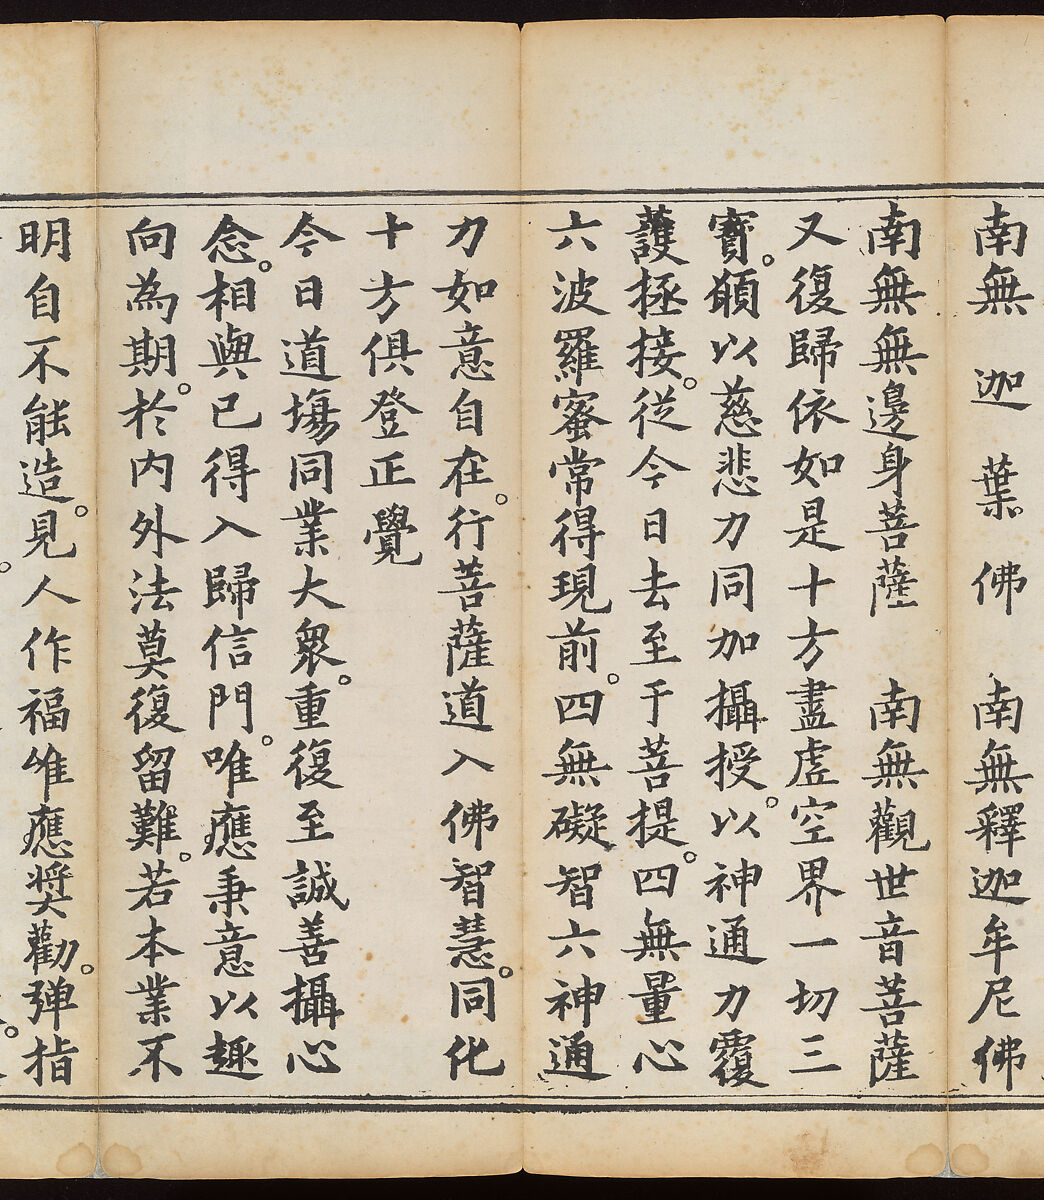 南無迦葉佛　南無釋迦牟尼佛
南無無邊身菩薩　南無觀世音菩薩
又復歸依如是十方盡虛空界一切三
寶。願以慈悲力同加攝授。以神通力覆
護拯接。從今日去至于菩提。四無量心
六波羅蜜常得現前。四無礙智六神通
力如意自在。行菩薩道入佛智慧。同化
十方俱登正覺
今日道場同業大衆。重復至誠善攝心
念。相與已得入歸信門。唯應秉意以趣
向為期。於内外法莫復留難。若本業不
明自不能造。見人作福唯應奬勸。彈指